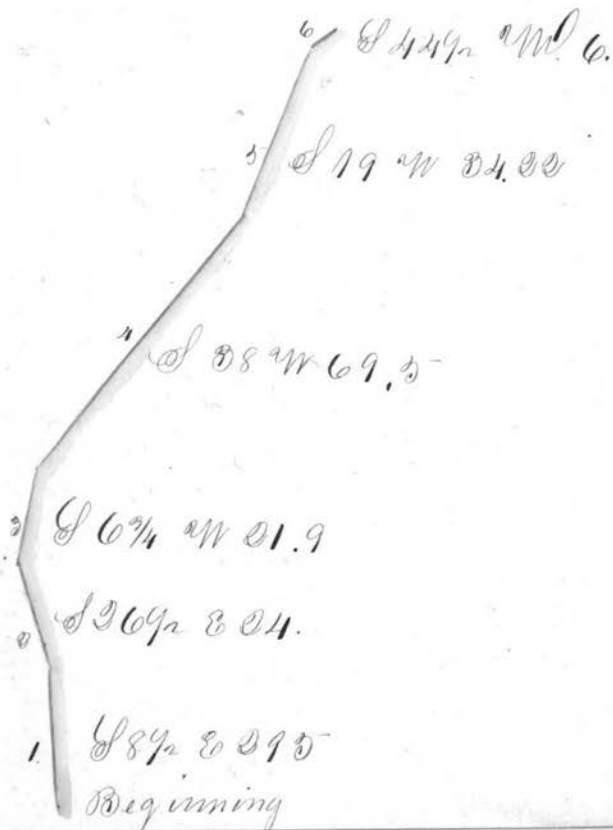 6 S 44½ W 6.
5 S 19 W 34.22
4 S 38 W 69.5
3 S 6¾ W 21.9
2 S 26½ E 24.
1. S 8½ E 295
Beginning